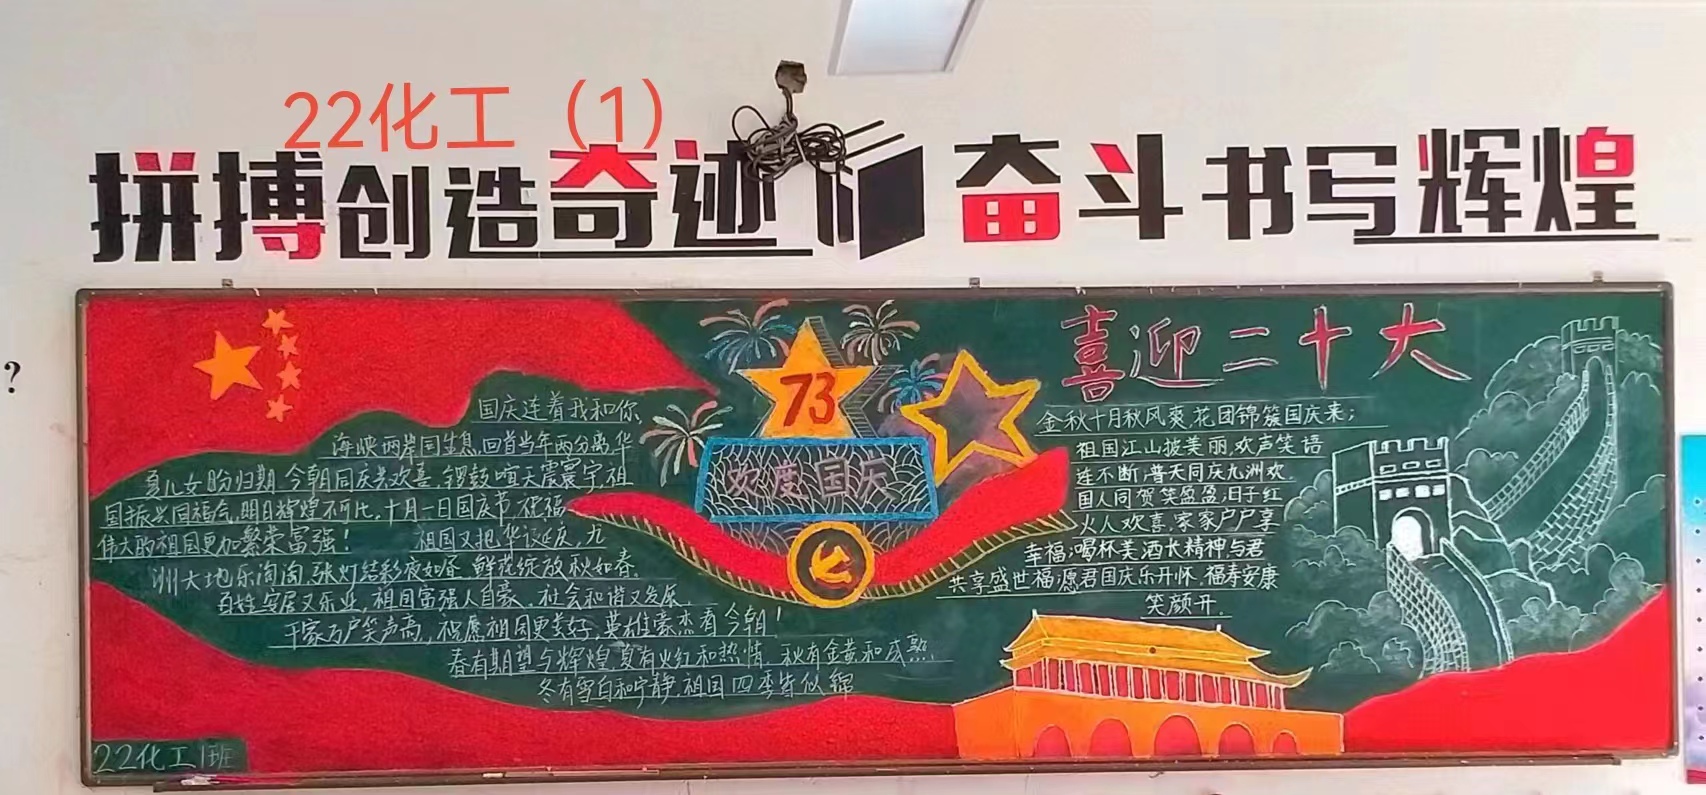 22化工（1）
拼搏创造奇迹 奋斗书写辉煌
?
喜迎二十大
73
欢度国庆
国庆连着我和你,
海峡两岸同生息,回首当年两分离,华
夏儿女盼归期,今朝同庆共欢喜,锣鼓喧天震寰宇,祖
国振兴国福气,明日辉煌不可比,十月一日国庆节,祝福
伟大的祖国更加繁荣富强! 祖国又把华诞庆,九
洲大地乐淘淘,张灯结彩夜如昼,鲜花绽放秋如春,
百姓安居又乐业,祖国富强人自豪,社会和谐又发展,
千家万户笑声高,祝愿祖国更美好,英雄豪杰看今朝!
春有期望与辉煌,夏有火红和热情,秋有金黄和成熟
冬有雪白和宁静,祖国四季皆似锦
金秋十月秋风爽,花团锦簇国庆来;
祖国江山披美丽,欢声笑语
连不断;普天同庆九洲欢,
国人同贺笑盈盈;日子红
火人欢喜,家家户户享
幸福;喝杯美酒长精神,与君
共享盛世福;愿君国庆乐开怀,福寿安康
笑颜开.
22化工1班